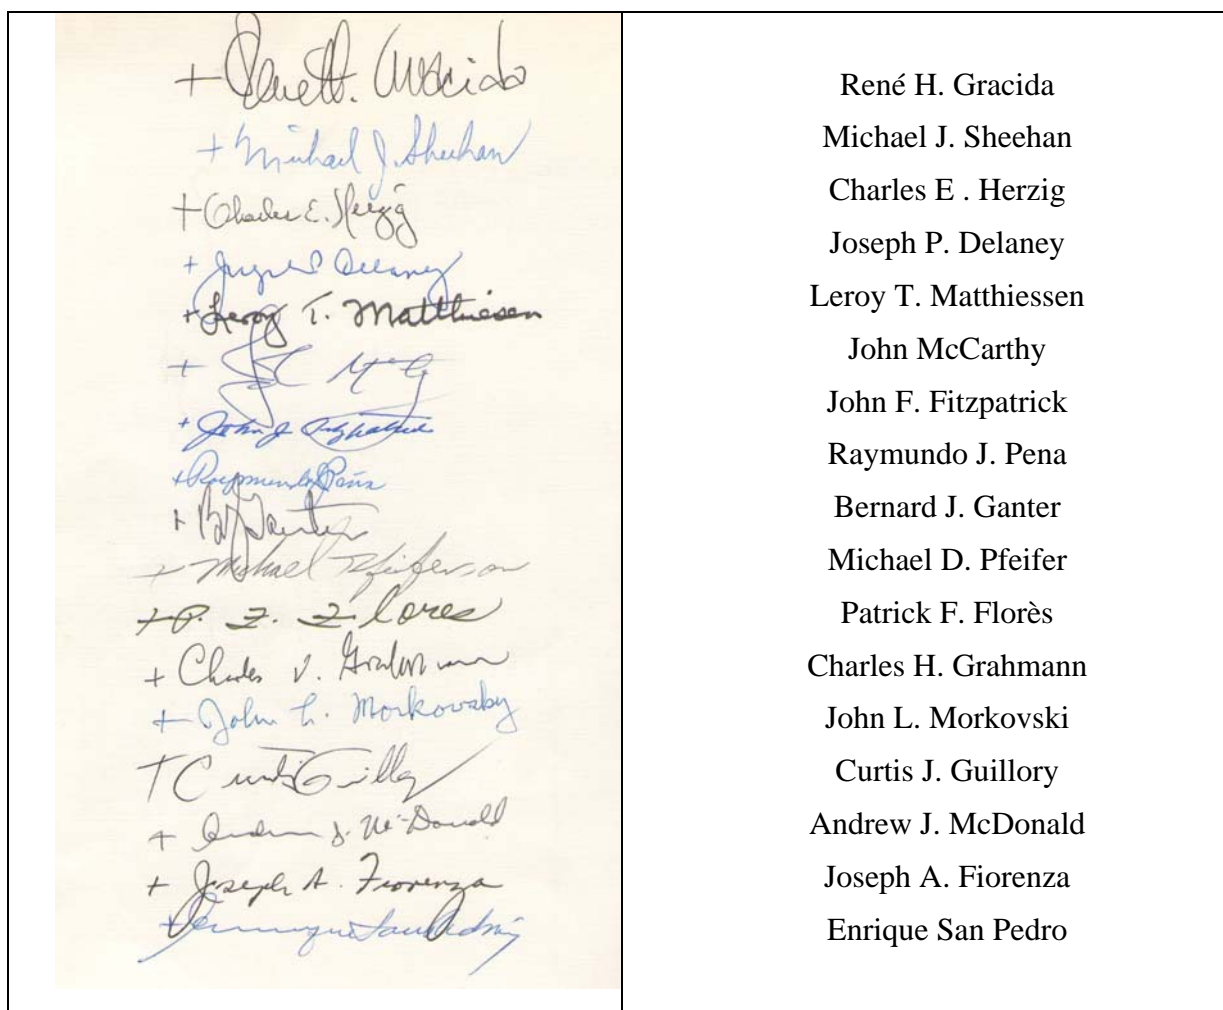 + Rene H. Gracida
+ Michael J. Sheehan
+ Charles E. Herzig
+ Joseph P. Delaney
+ Leroy T. Matthiesen
+
+ John J. Fitzpatrick
+ Raymundo J. Peña
+ B J Ganter
+ Michael Pfeifer, OMI
+ P. F. Flores
+ Charles V. Grahmann
+ John L. Morkovsky
+ Curtis Guillory
+ Andrew J. McDonald
+ Joseph A. Fiorenza
+ Enrique San Pedro, SJ
René H. Gracida
Michael J. Sheehan
Charles E . Herzig
Joseph P. Delaney
Leroy T. Matthiessen
John McCarthy
John F. Fitzpatrick
Raymundo J. Pena
Bernard J. Ganter
Michael D. Pfeifer
Patrick F. Florès
Charles H. Grahmann
John L. Morkovski
Curtis J. Guillory
Andrew J. McDonald
Joseph A. Fiorenza
Enrique San Pedro